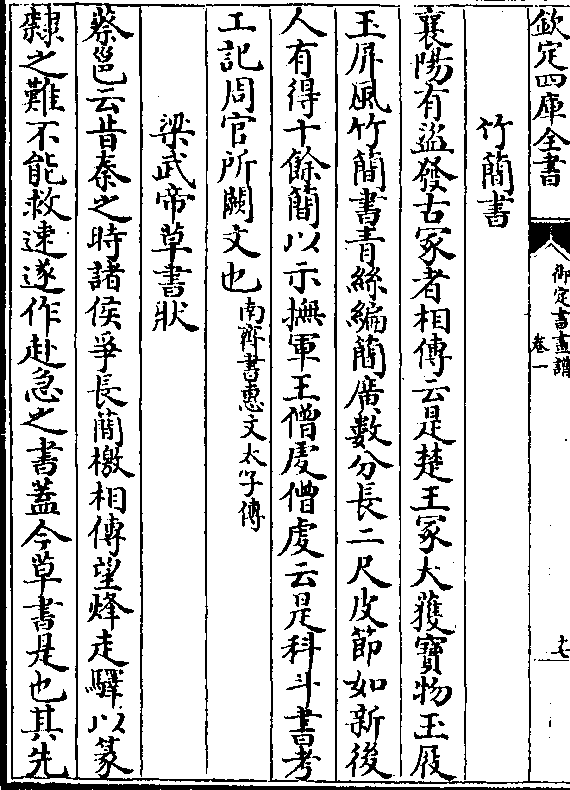 欽定四庫全書
御定書畫譜
卷一
十七
竹蕳書
襄陽有盜發古冢者相傳云是楚王冢大獲寶物玉屐
玉屏風竹蕳書青絲編蕳廣數分長二尺皮節如新後
人有得十餘蕳以示撫軍王僧虔僧虔云是科斗書考
工記周官所闕文也南齊書惠文太子傳
梁武帝草書狀
蔡邕云昔秦之時諸侯爭長蕳檄相傳望烽走驛以篆
隸之難不能救速遂作赴急之書蓋今草書是也其先